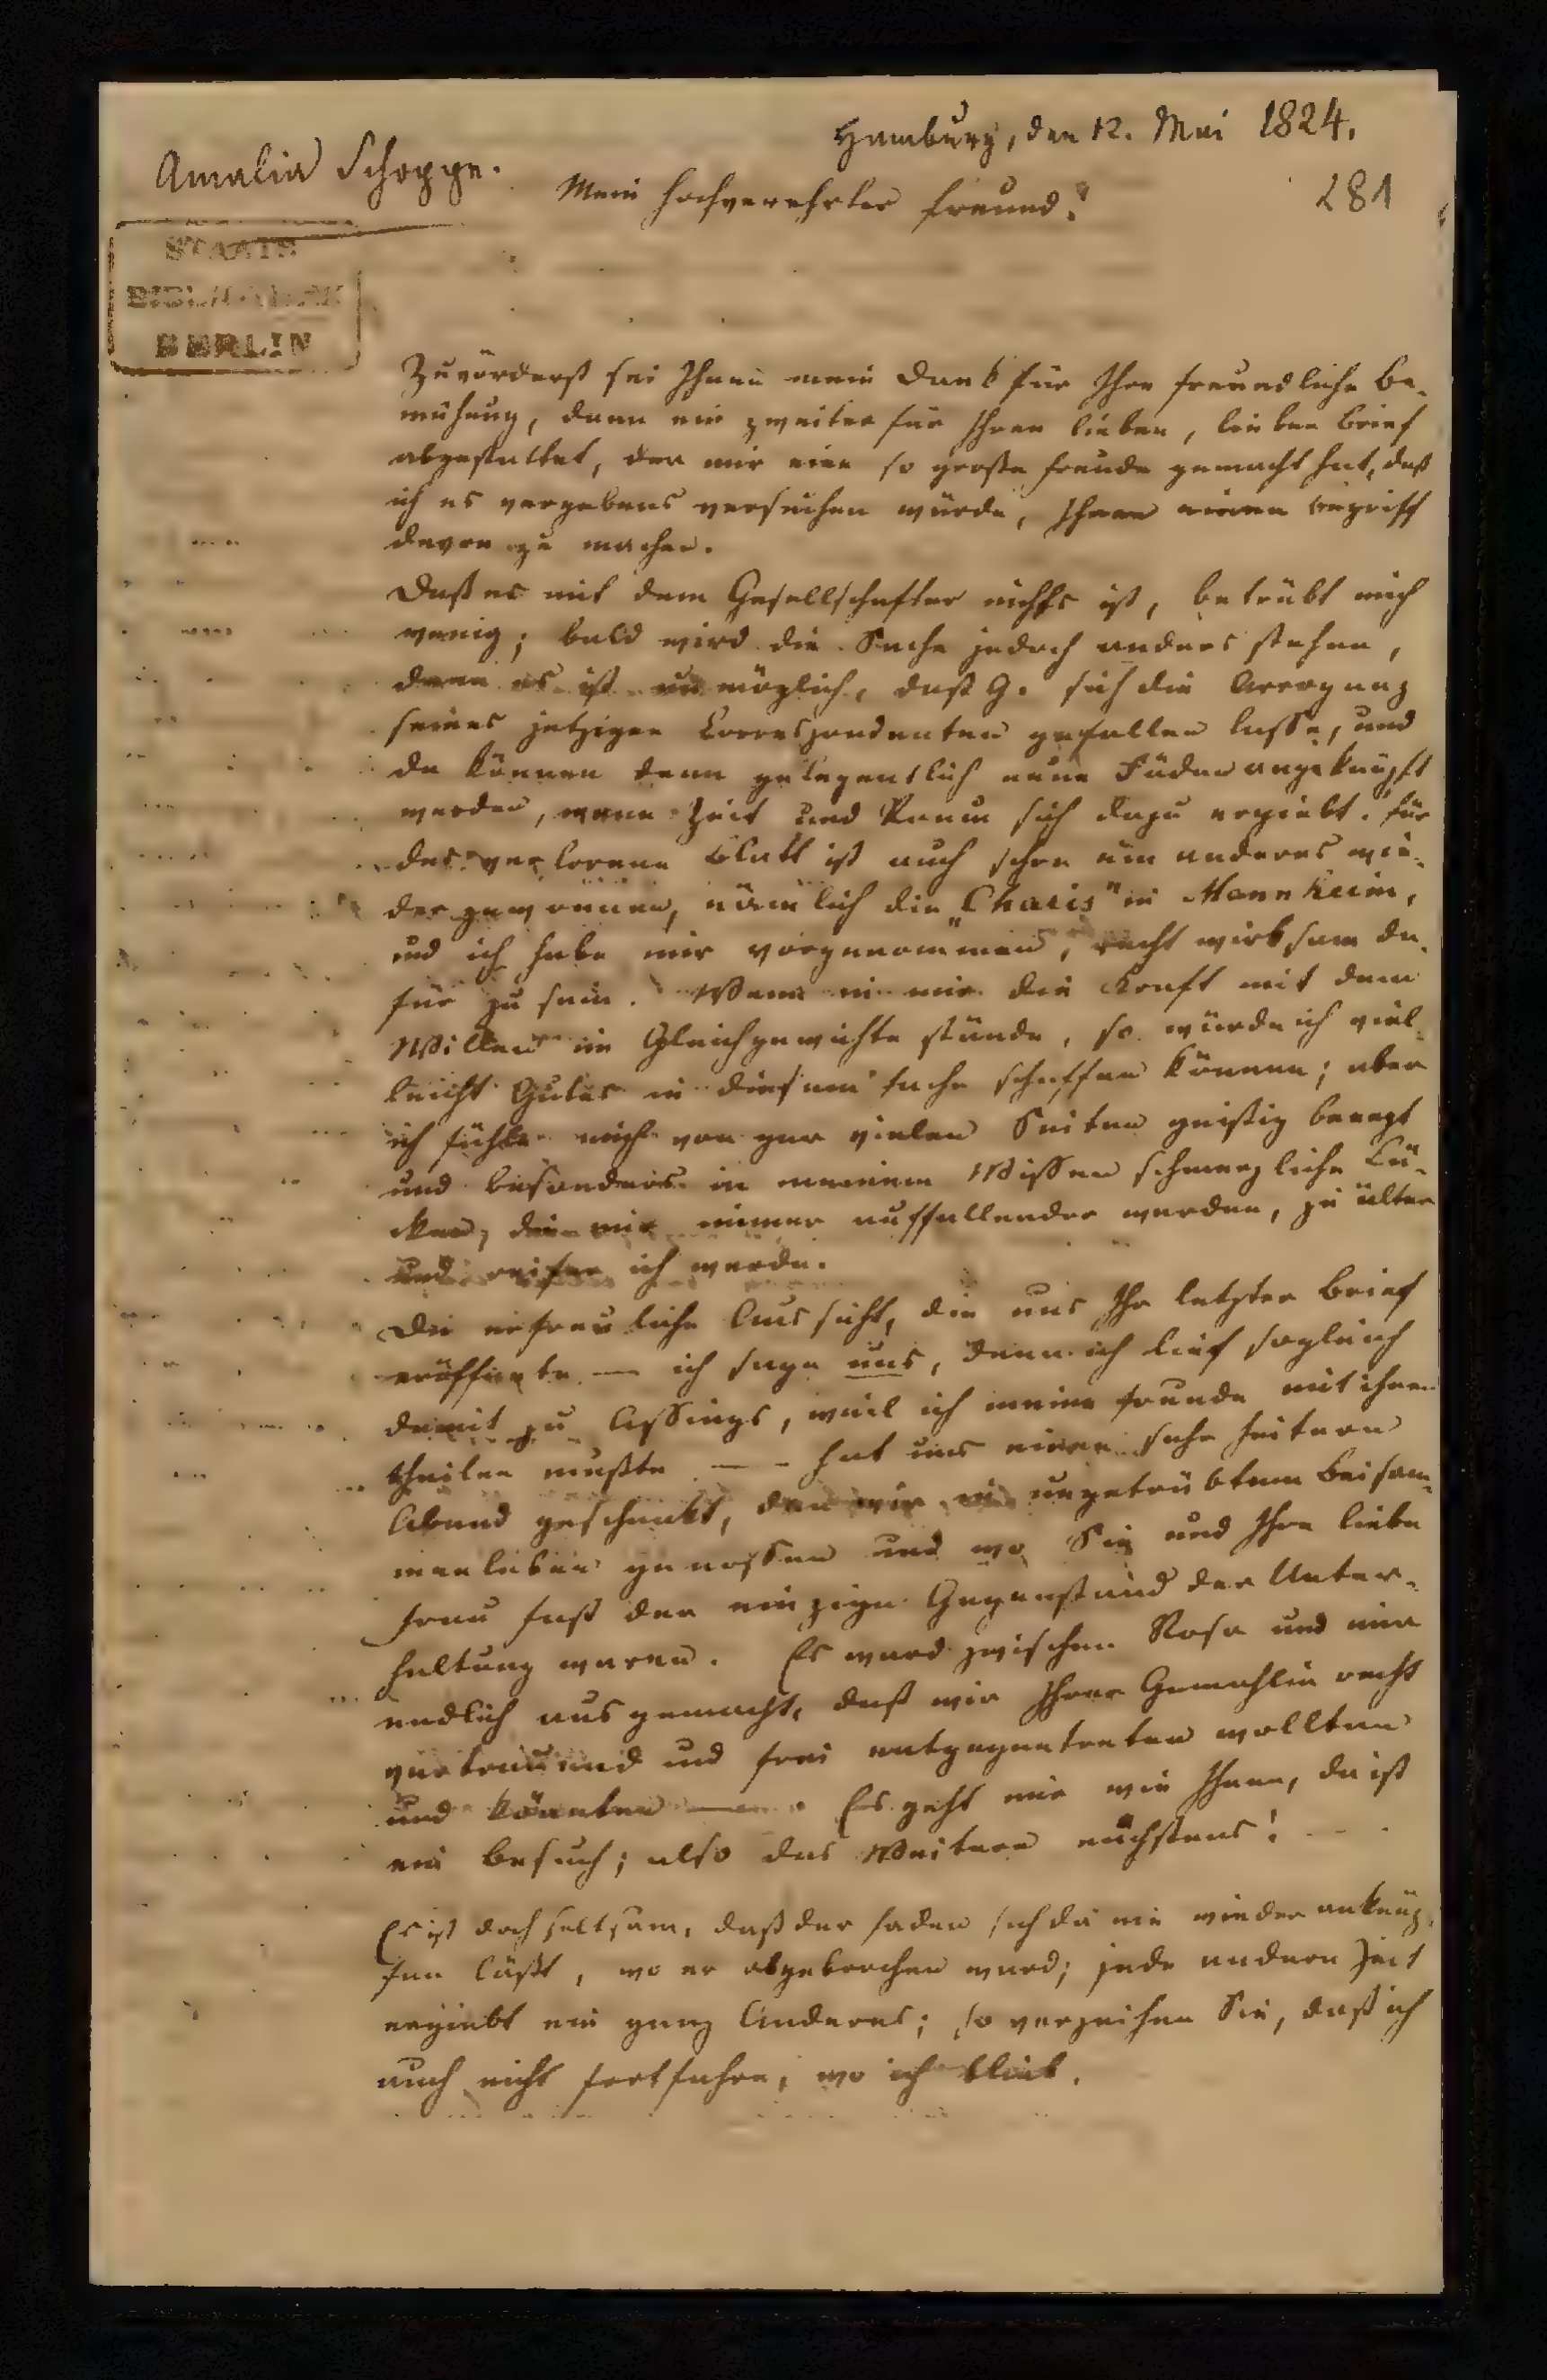 Hamburg, den 12. Mai 1824.
Amalia Schoppe.
281
Mein hochverehrter Freund!
STAATS
BIBLIOTHEK
BERLIN
Zuvörderst sei Ihnen mein Dank für Ihre freundliche Be-
mühung, dann ein zweiter für Ihren lieben, lieben Brief
abgestattet, der mir eine so große Freude gemacht hat, daß
ich es vergebens versuchen würde, Ihnen einen Begriff
davon zu machen.
Daß es mit dem Gesellschafter nichts ist, betrübt mich
wenig; bald wird die Sache jedoch anders stehen,
denn es ist unmöglich, daß G. sich die Arroganz
seines jetzigen Correspondenten gefallen lasse, und
da können denn gelegentlich neue Fäden angeknüpft
werden, wenn Zeit und Raum sich dazu ergiebt. Für
das verlorene Blatt ist auch schon ein anderes wie-
der gewonnen, nämlich die „Charis" in Mannheim,
und ich habe mir vorgenommen, recht wirksam da-
für zu sein. Wenn in mir die Kraft mit dem
Willen im Gleichgewichte stünde, so würde ich viel-
leicht Gutes in diesem Fache schaffen können; aber
ich fühle mich von gar vielen Seiten geistig beengt
und besonders in meinem Wissen schmerzliche Lü-
cken, die mir immer auffallender werden, je älter
und reifer ich werde.
Die erfreuliche Aussicht, die uns Ihr letzter Brief
eröffnete — ich sage uns, denn ich lief sogleich
damit zu Assings, weil ich meine Freude mit ihnen
theilen mußte — hat uns einen sehr heitern
Abend geschenkt, den wir in ungetrübtem Beisam-
menleben genossen und wo Sie und Ihre liebe
Frau fast der einzige Gegenstand der Unter-
haltung waren. Es ward zwischen Rosa und mir
endlich ausgemacht, daß wir Ihrer Gemahlin recht
vertrauend und frei entgegentreten wollten
und könnten —. Es geht mir wie Ihnen, da ist
ein Besuch; also das Weitere nächstens!
Es ist doch seltsam, daß der Faden sich da nie wieder anknüp-
fen läßt, wo er abgebrochen ward; jede andere Zeit
ergiebt ein ganz Anderes; so verzeihen Sie, daß ich
auch nicht fortfahre, wo ich blieb.